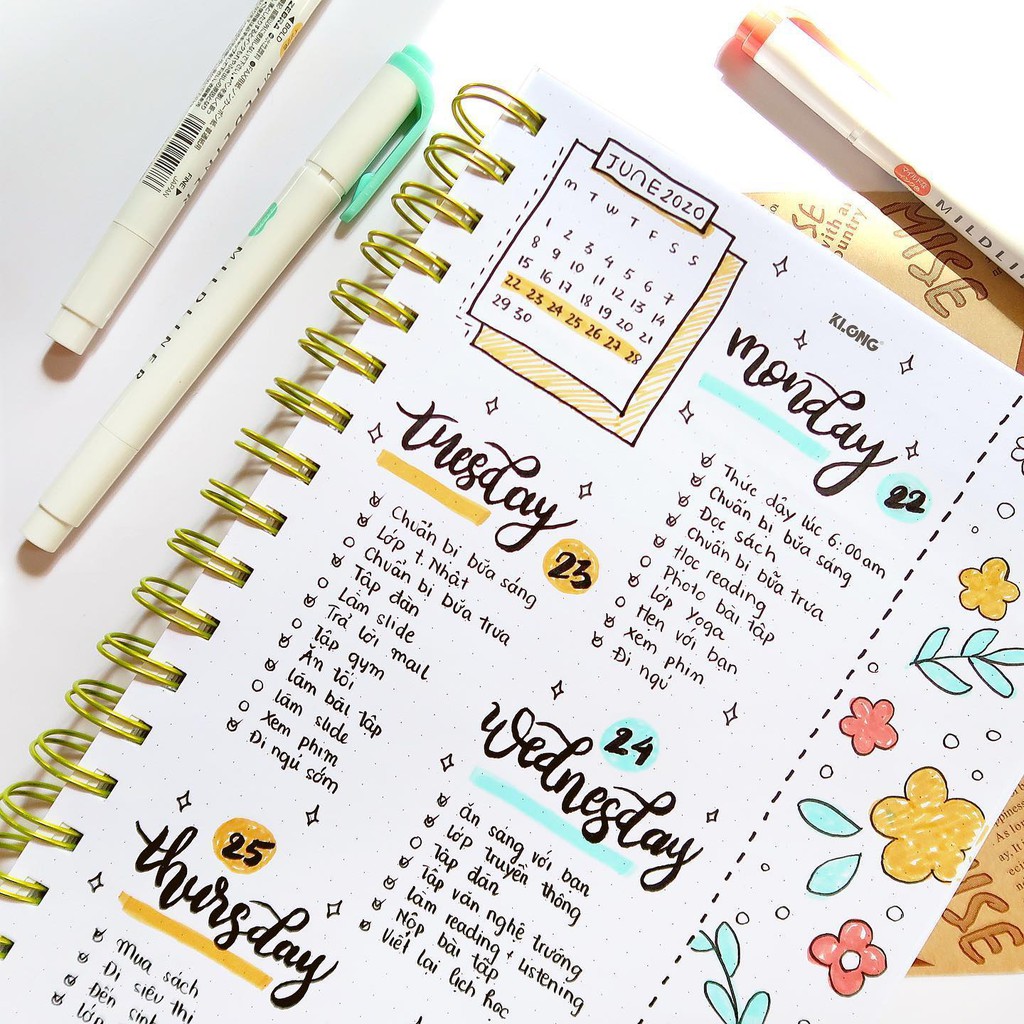 ZEBRA
BOLD
FINE
JAPAN
MILDLINER
MILDLI
JUNE 2020
M T W T F S S
1 2 3 4 5 6 7
8 9 10 11 12 13 14
15 16 17 18 19 20 21
22 23 24 25 26 27 28
29 30
KLONG
monday
22
Thức dậy lúc 6:00am
Chuẩn bị bữa sáng
Đọc sách
Chuẩn bị bữa trưa
Học reading
Photo bài tập
Lớp Yoga
Hẹn với bạn
Xem phim
Đi ngủ
tuesday
23
Chuẩn bị bữa sáng
Lớp t. Nhật
Chuẩn bị bữa trưa
Tập đàn
Làm slide
Trả lời mail
Tập gym
Ăn tối
làm bài tập
làm slide
Xem phim
Đi ngủ sớm
wednesday
24
Ăn sáng với bạn
lớp truyền thông
Tập đàn
Tập văn nghệ trường
làm reading + Listening
Nộp bài tập
Viết lại lịch học
thursday
25
Mua sách
Đi siêu thị
Đến sinh
lớp
with a
ountry